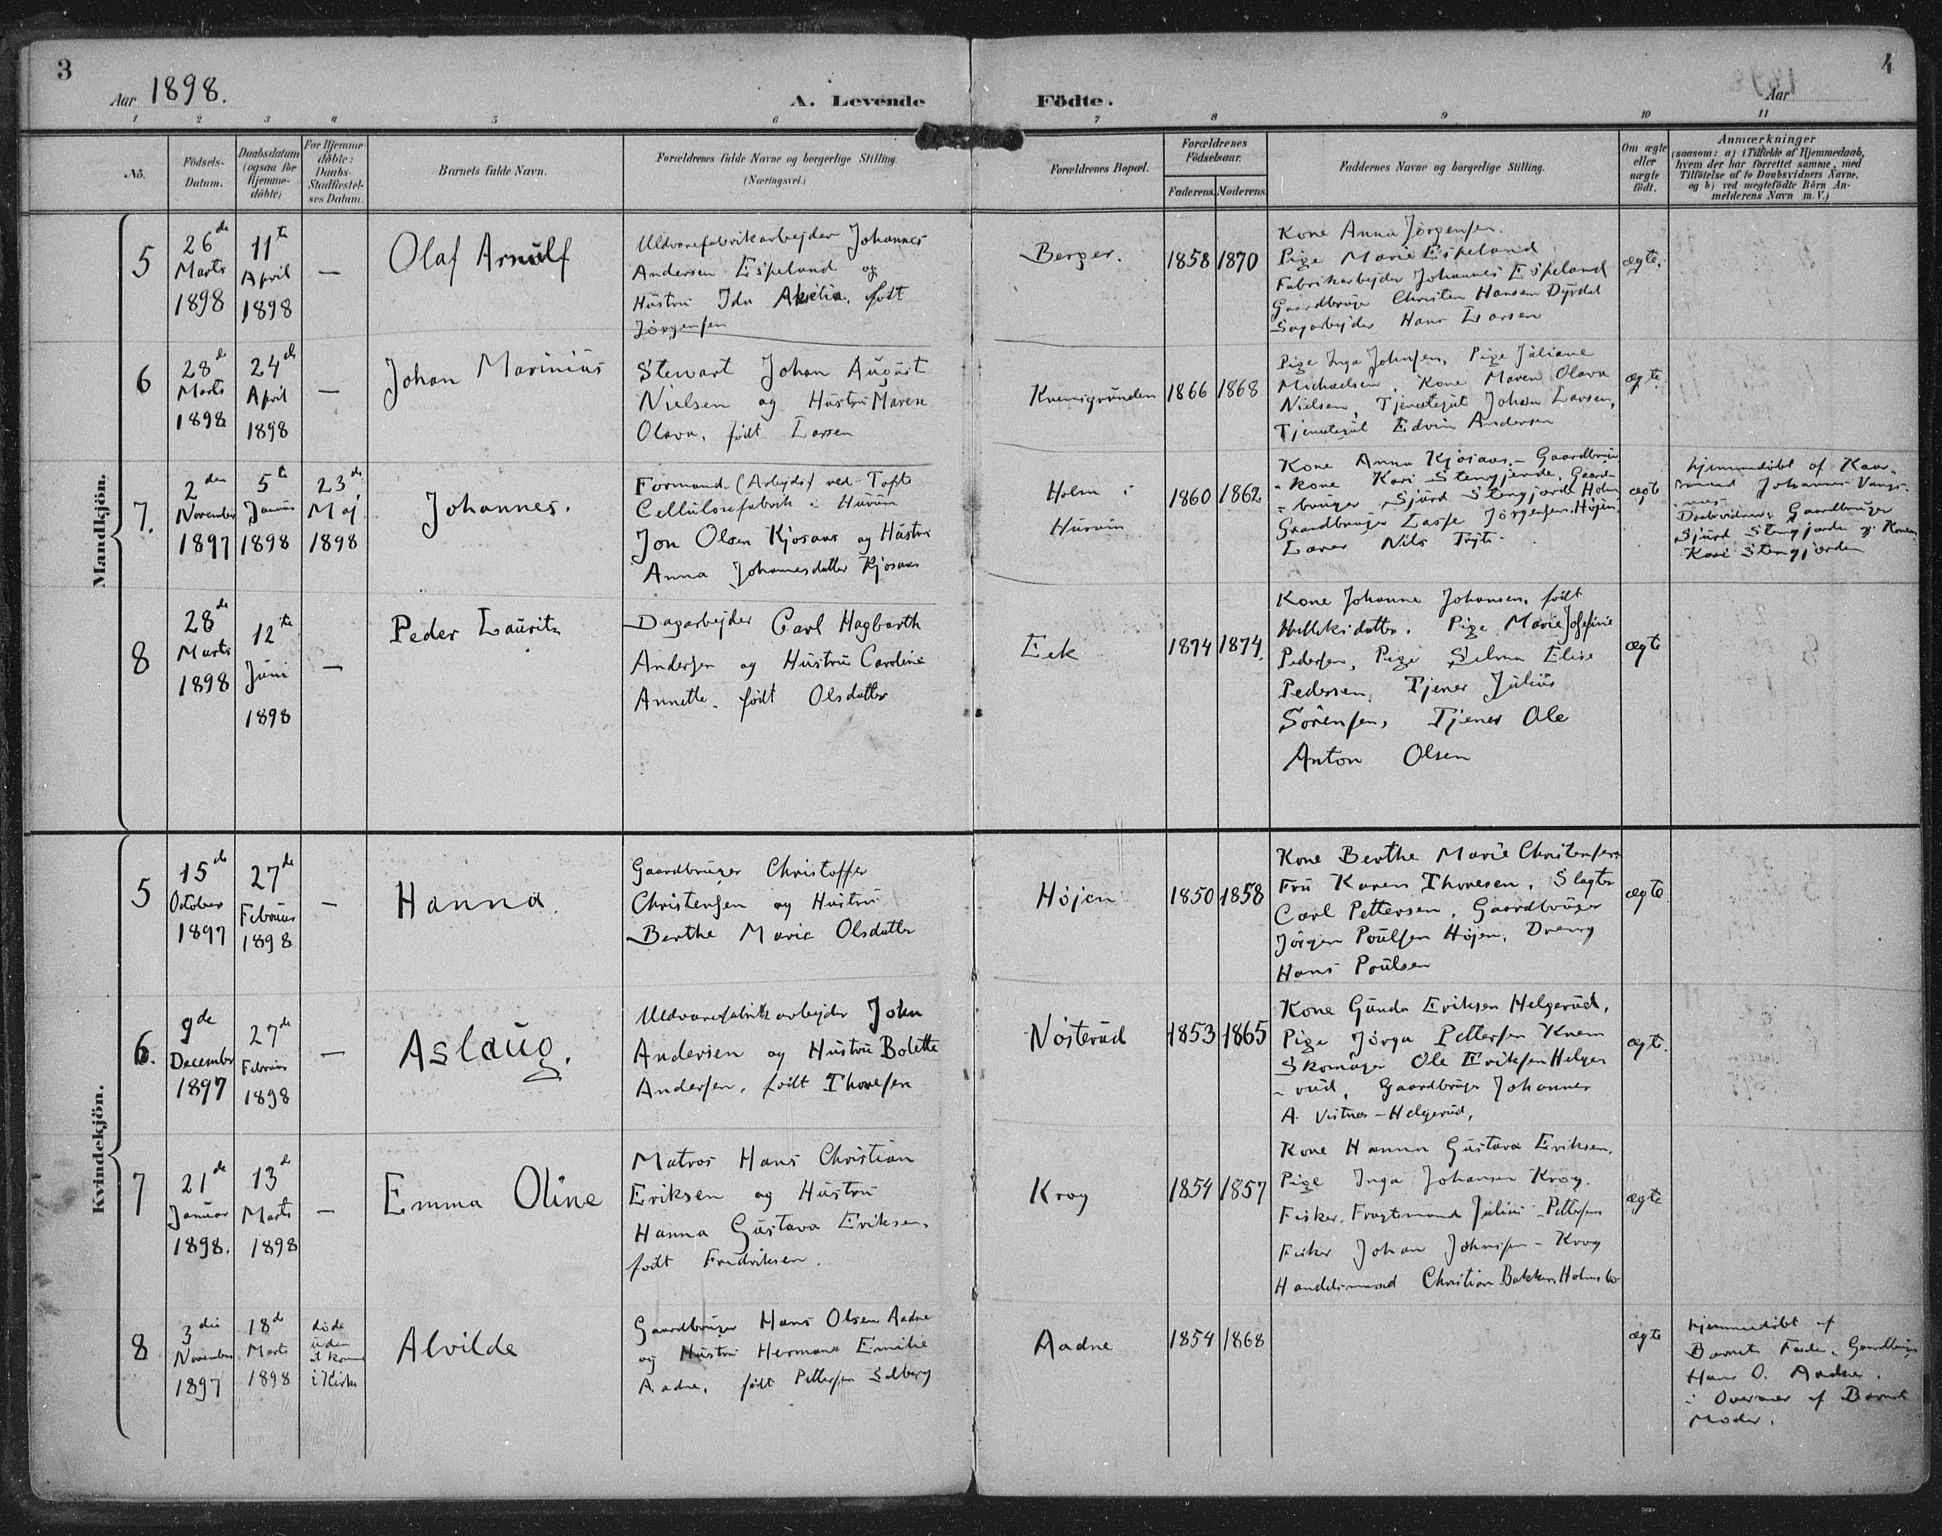 3
4
Aar 1898.
A. Levende
Födte.
Aar
1 2 3 4 5 6 7 8 9 10 11
No.
Födsels-
Datum.
Daabsdatum
(ogsaa for
Hjemme-
döbte)
For Hjemme-
döbte:
Daabs-
Stadfæstel-
ses Datum.
Barnets fulde Navn.
Forældrenes fulde Navne og borgerlige Stilling.
(Næringsvei.)
Forældrenes Bopæl.
Forældrenes
Födselsaar.
Faderens. Moderens.
Faddernes Navne og borgerlige Stilling.
Om ægte
eller
uægte
födt.
Anmærkninger
(saasom: a) i Tilfælde af Hjemmedaab,
hvem der har forrettet samme, med
Tilföielse af to Daabsvidners Navne.
og b) ved uægtefödte Börn An-
melderens Navn m. V.)
Mandkjön.
5
26de
Marts
1898
11te
April
1898
—
Olaf Arnulf
Uldvarefabrikarbejder Johannes
Andersen Espeland og
Hustru Ida Akselia, født
Jørgensen
Berger.
1858 1870
Kone Anna Jörgensen.
Pige Marie Espeland
Fabrikarbejder Johannes Espeland
Gaardbruger Christen Hansen Dyrdal
Sagarbejder Hans Larsen
ægte.
6
28de
Marts
1898
24de
April
1898
—
Johan Marinius
Stewart Johan August
Nielsen og Hustru Maren
Olava, født Larsen
Knemsgrunden
1866 1868
Pige Inga Johnsen, Pige Juliane
Michaelsen, Kone Maren Olava
Nielsen, Tjenestegut Johan Larsen,
Tjenestegut Edvin Andersen
ægte.
7.
2den
November
1897
5te
Januar
1898
23de
Maj
1898
Johannes.
Formand (Arbejds) ved Tofte
Cellulosefabrik i Hurum
Jon Olsen Kjosaas og Hustru
Anna Johannesdatter Kjosaas
Holm i
Hurum
1860 1862
Kone Anna Kjosaas, – Gaardbruger
- kone Kari Stengjorde, Gaard-
- bruger Sjurd Stengjorde Holm
Gaardbruger Lasse Jörgensen Højen.
Lærer Nils Tryti.
ægte
hjemmedøbt af Kaar-
mand Johannes Vangs-
nes
Daabsvidner: Gaardbruger
Sjurd Stengjorde og Konen
Kari Stengjorden
8
28de
Marts
1898
12te
Juni
1898
—
Peder Lauritz
Dagarbejder Carl Hagbarth
Andersen og Hustru Caroline
Annette, født Olsdatter
Eek
1874 1874.
Kone Johanne Johansen, født
Hulleksdatter. Pige Marie Josefine
Pedersen, Pige Selma Elise
Pedersen, Tjener Julius
Sörensen, Tjener Ole
Anton Olsen
ægte
Kvindekjön.
5
15de
October
1897
27de
Februar
1898
—
Hanna
Gaardbruger Christoffer
Christensen og Hustru
Berthe Marie Olsdatter
Højen
1850 1858
Kone Berthe Marie Christensen
Fru Karen Thoresen, Slagter
Carl Pettersen, Gaardbruger
Jörgen Poulsen Højen, Dreng
Hans Poulsen
ægte
6.
9de
December
1897
27de
Februar
1898
—
Aslaug.
Uldvarefabrikarbejder John
Andersen og Hustru Bolette
Andersen, født Thoresen
Nøsterud
1853 1865
Kone Gunda Eriksen Helgerud.
Pige Jörga Pettersen Knem
Skomager Ole Eriksen Helge-
- rud, Gaardbruger Johannes
A. Vistnes – Helgerud,
ægte.
7
21de
Januar
1898.
13de
Marts
1898
—
Emma Oline
Matros Hans Christian
Eriksen og Hustru
Hanna Gustava Eriksen,
født Fredriksen.
Krog
1854 1857
Kone Hanna Gustava Eriksen.
Pige Inga Johansen Krog.
Fisker, Fragtemand Julius Pettersen
Fisker Johan Johnsen – Krog
Handelsmand Christian Bakken Holmsbo
ægte
8
3die
November
1897
18de
Marts
1898
døde
uden
at komme
i Kirke
Alvilde
Gaardbruger Hans Olsen Aadne
og Hustru Hermana Emilie
Aadne, født Pettersen Solberg
Aadne
1854 1868
ægte
hjemmedøbt af
Barnets Fader, Gaardbruger
Hans O. Aadne.
i Overvær af Barnets
Moder.